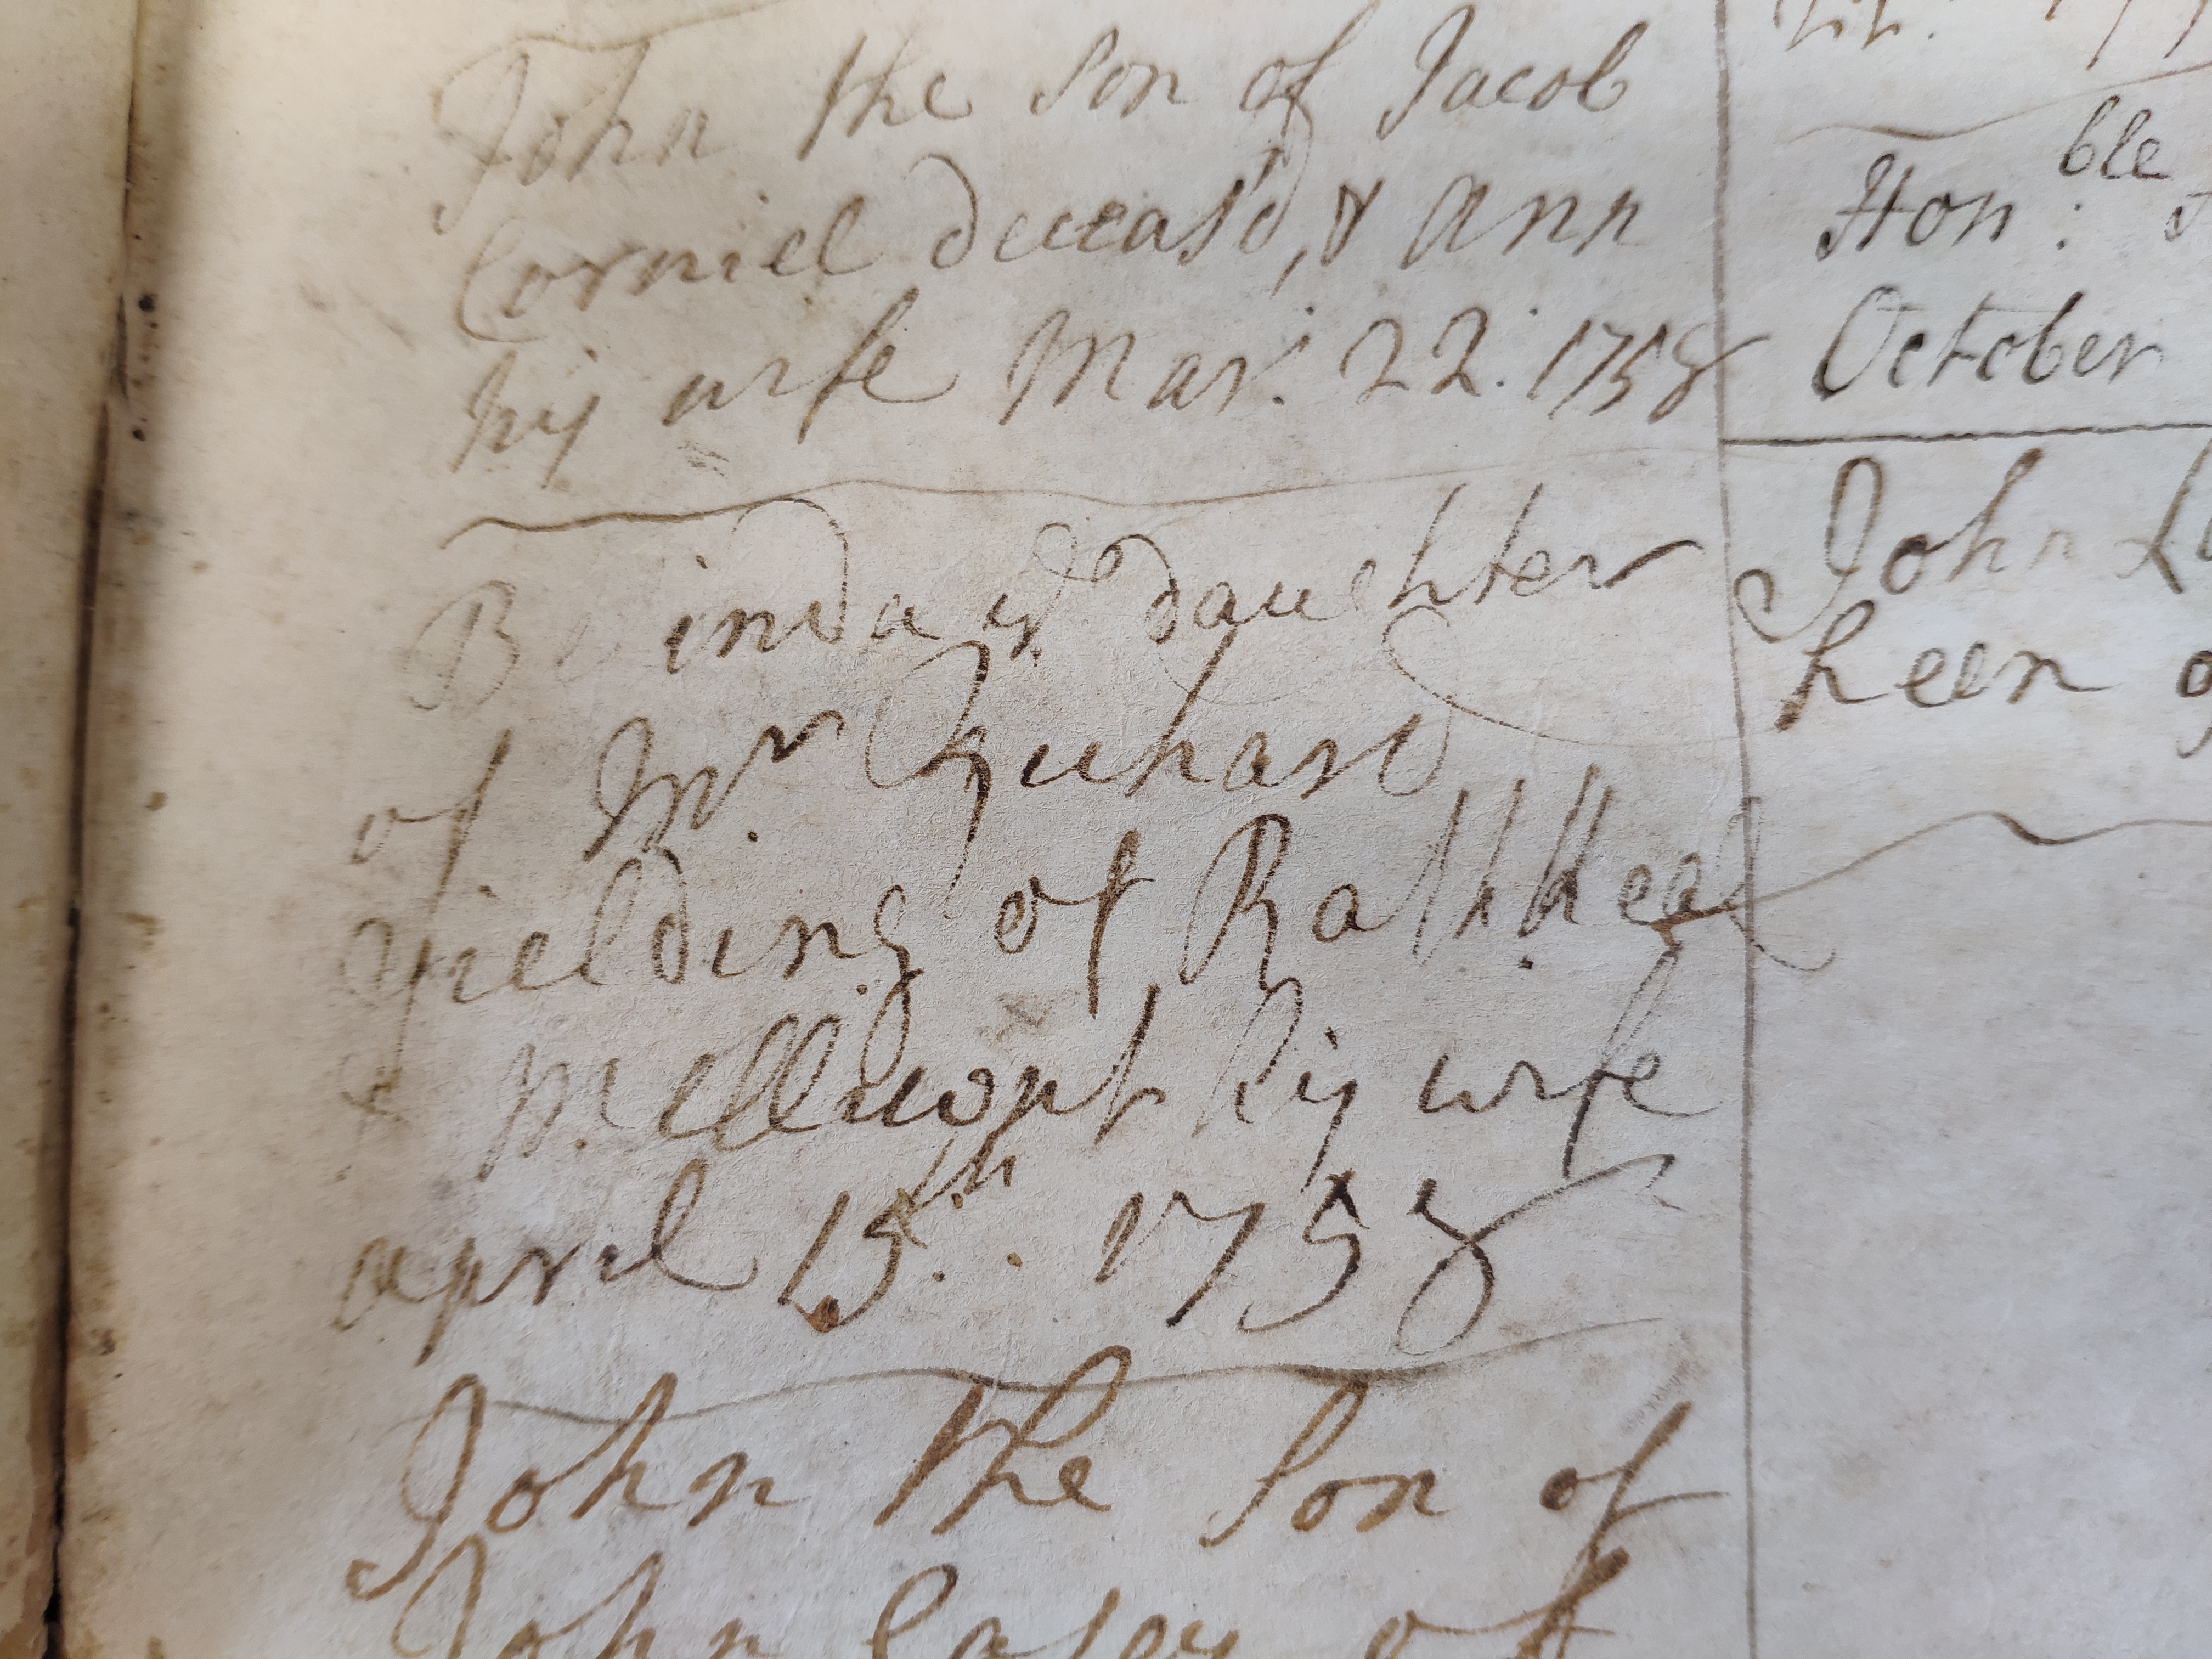 John the Son of Jacob
Corniel deceas'd, & Ann
his wife Mar: 22. 1758
Belinda ye daughter
of Mr. Richard
Yielding of Rathkeal
& his wife
april 15th. 1758
John the Son of
John Casey of
Hon:ble
October
John
heen